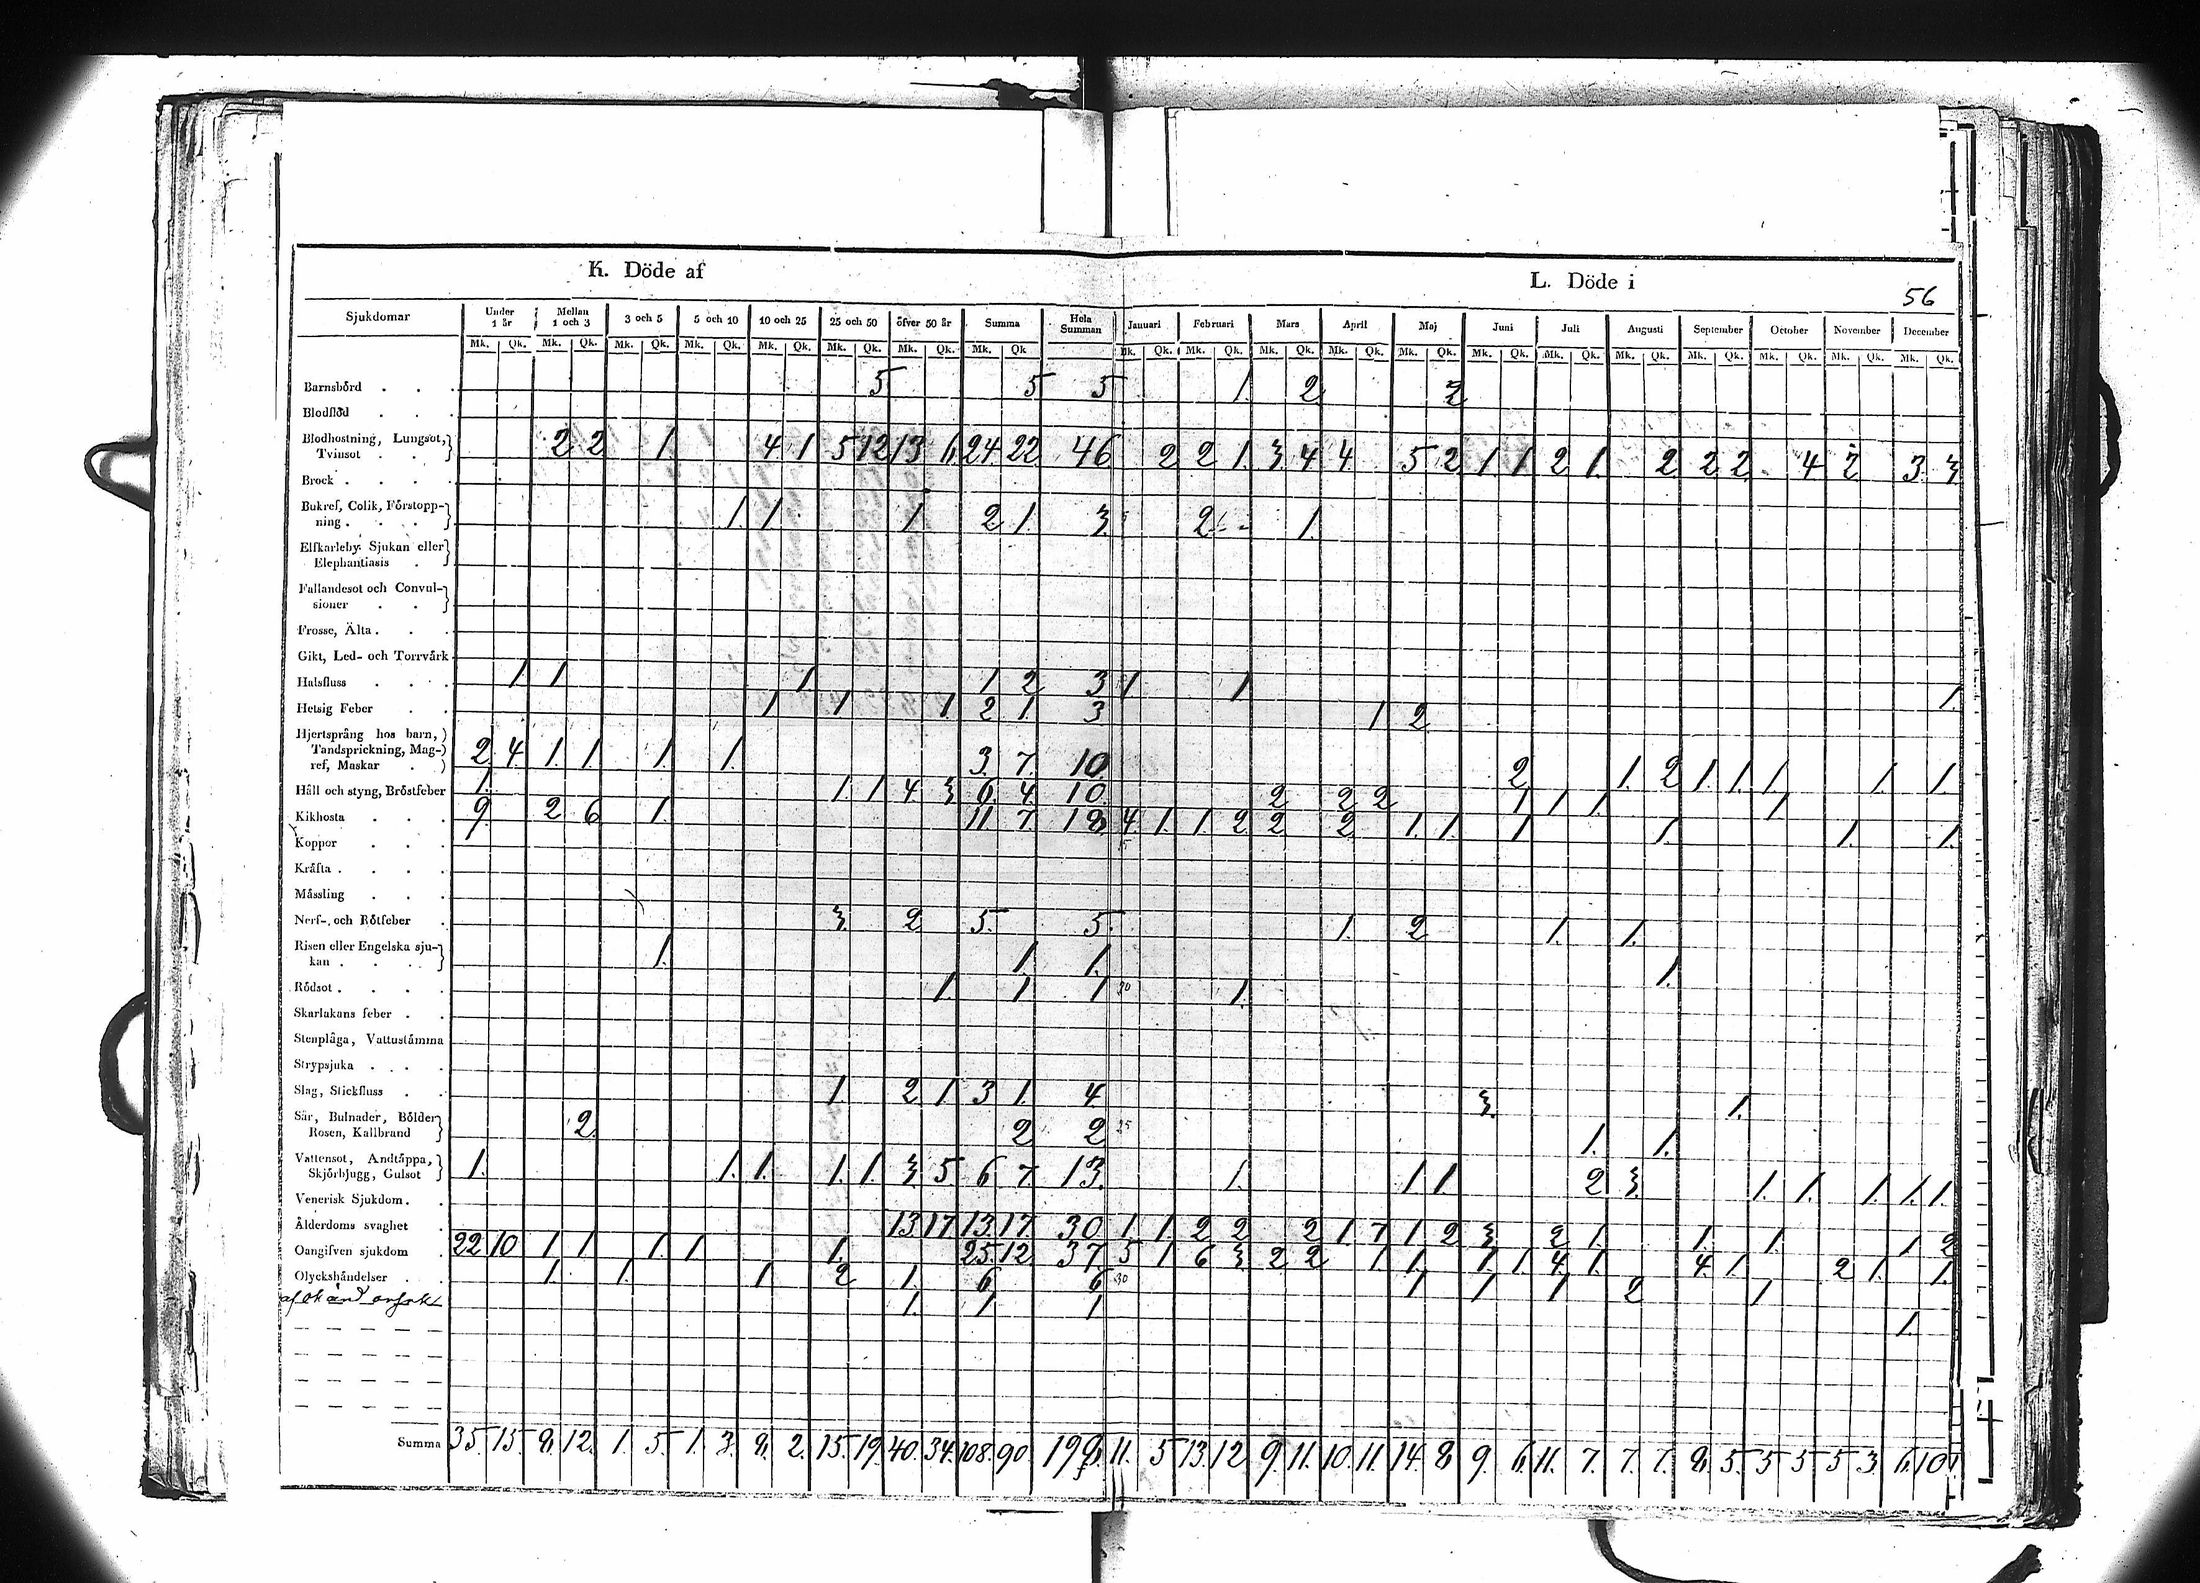 K. Döde af
L. Döde i
56
Sjukdomar Under 1 år Mellan 1 och 3 3 och 5 5 och 10 10 och 25 25 och 50 öfver 50 år Summa Hela Summan Januari Februari Mars April Maj Juni Juli Augusti September October November December
Mk. Qk. Mk. Qk. Mk. Qk. Mk. Qk. Mk. Qk. Mk. Qk. Mk. Qk. Mk. Qk Mk. Qk. Mk. Qk. Mk. Qk. Mk. Qk. Mk. Qk. Mk. Qk. Mk. Qk. Mk. Qk. Mk. Qk. Mk. Qk. Mk. Qk. Mk. Qk.
Barnsbörd 5 5 5 1. 2 2
Blodflöd
Blodhostning, Lungsot,
Tvinsot 2 2 1 4 1 5 12 13 6 24. 22 46 2 2 1. 3 4 4 5 2 1. 1 2 1. 2 2 2 4 2 3 3
Brock
Bukref, Colik, Förstopp-
ning 1. 1. 1. 2 1. 3. 2 1.
Elfkarleby Sjukan eller
Elephantiasis
Fallandesot och Convul-
sioner
Frosse, Älta
Gikt, Led- och Torrvärk
Halsfluss 1. 1 1 1 2 3 1 1 1.
Hetsig Feber 1 1 1 2 1. 3 1 2
Hjertsprång hos barn,
Tandsprickning, Mag-
ref, Maskar 2 4. 1. 1 1 1. 3. 7. 10. 2 1. 2 1. 1. 1 1. 1
Håll och styng, Bröstfeber 1. 1. 1 4. 3 6. 4. 10. 2 2 2 1 1 1. 1
Kikhosta 9. 2 6 1. 11. 7. 18 4 1. 1. 2 2 2 1. 1. 1 1. 1. 1.
Koppor
Kräfta
Mässling
Nerf- och Rötfeber 3. 2 5. 5. 1. 2 1. 1.
Risen eller Engelska sju-
kan 1. 1 1. 1.
Rödsot 1. 1 1 1.
Skarlakans feber
Stenplåga, Vattustämma
Strypsjuka
Slag, Stickfluss 1. 2 1 3 1. 4 3. 1.
Sår, Bulnader, Bölder
Rosen, Kallbrand 2 2 2 1. 1.
Vattensot, Andtäppa,
Skjörbjugg, Gulsot 1. 1. 1. 1. 1. 3 5. 6 7 13. 1. 1 1. 2 3. 1. 1. 1. 1. 1.
Venerisk Sjukdom
Ålderdoms svaghet 13 17 13. 17. 30 1. 1 2 2 2 1 7 1 2 3 2 1. 1. 1. 1 2
Oangifven sjukdom 22 10 1 1 1. 1 1. 25. 12 37 5 1 6 3 2 2 1 1. 1. 1 4 1. 4. 1. 2 1. 1.
Olyckshändelser 1. 1. 1 2 1. 6 6 1 1 1 2 1
1. 1 1 1.
Summa 35. 15. 8. 12. 1. 5. 1. 3. 8. 2. 15. 19. 40. 34. 108. 90 198. 11. 5 13. 12 9. 11. 10. 11. 14. 8 9. 6. 11. 7. 7. 7. 8. 5. 5 5 5 3. 6. 10.